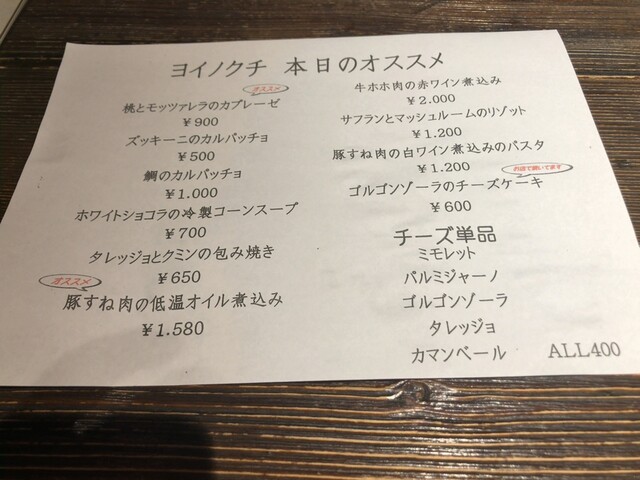 ヨイノクチ 本日のオススメ
オススメ
桃とモッツァレラのカプレーゼ
￥900
ズッキーニのカルパッチョ
￥500
鯛のカルパッチョ
￥1.000
ホワイトショコラの冷製コーンスープ
￥700
タレッジョとクミンの包み焼き
￥650
オススメ
豚すね肉の低温オイル煮込み
￥1.580
牛ホホ肉の赤ワイン煮込み
￥2.000
サフランとマッシュルームのリゾット
￥1.200
豚すね肉の白ワイン煮込みのパスタ
￥1.200
お店で焼いてます
ゴルゴンゾーラのチーズケーキ
￥600
チーズ単品
ミモレット
パルミジャーノ
ゴルゴンゾーラ
タレッジョ
カマンベール ALL400